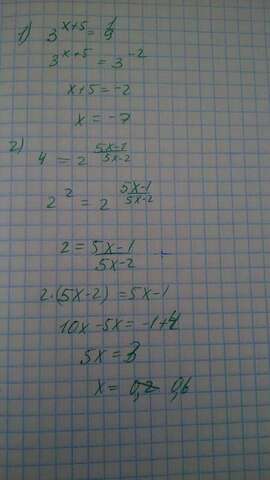 1) 3^(x+5) = 1/9
3^(x+5) = 3^(-2)
x+5 = -2
x = -7
2) 4 = 2^((5x-1)/(5x-2))
2^2 = 2^((5x-1)/(5x-2))
2 = (5x-1)/(5x-2)
2·(5x-2) = 5x-1
10x-5x = -1+4
5x = 3
x = 0,2 0,6